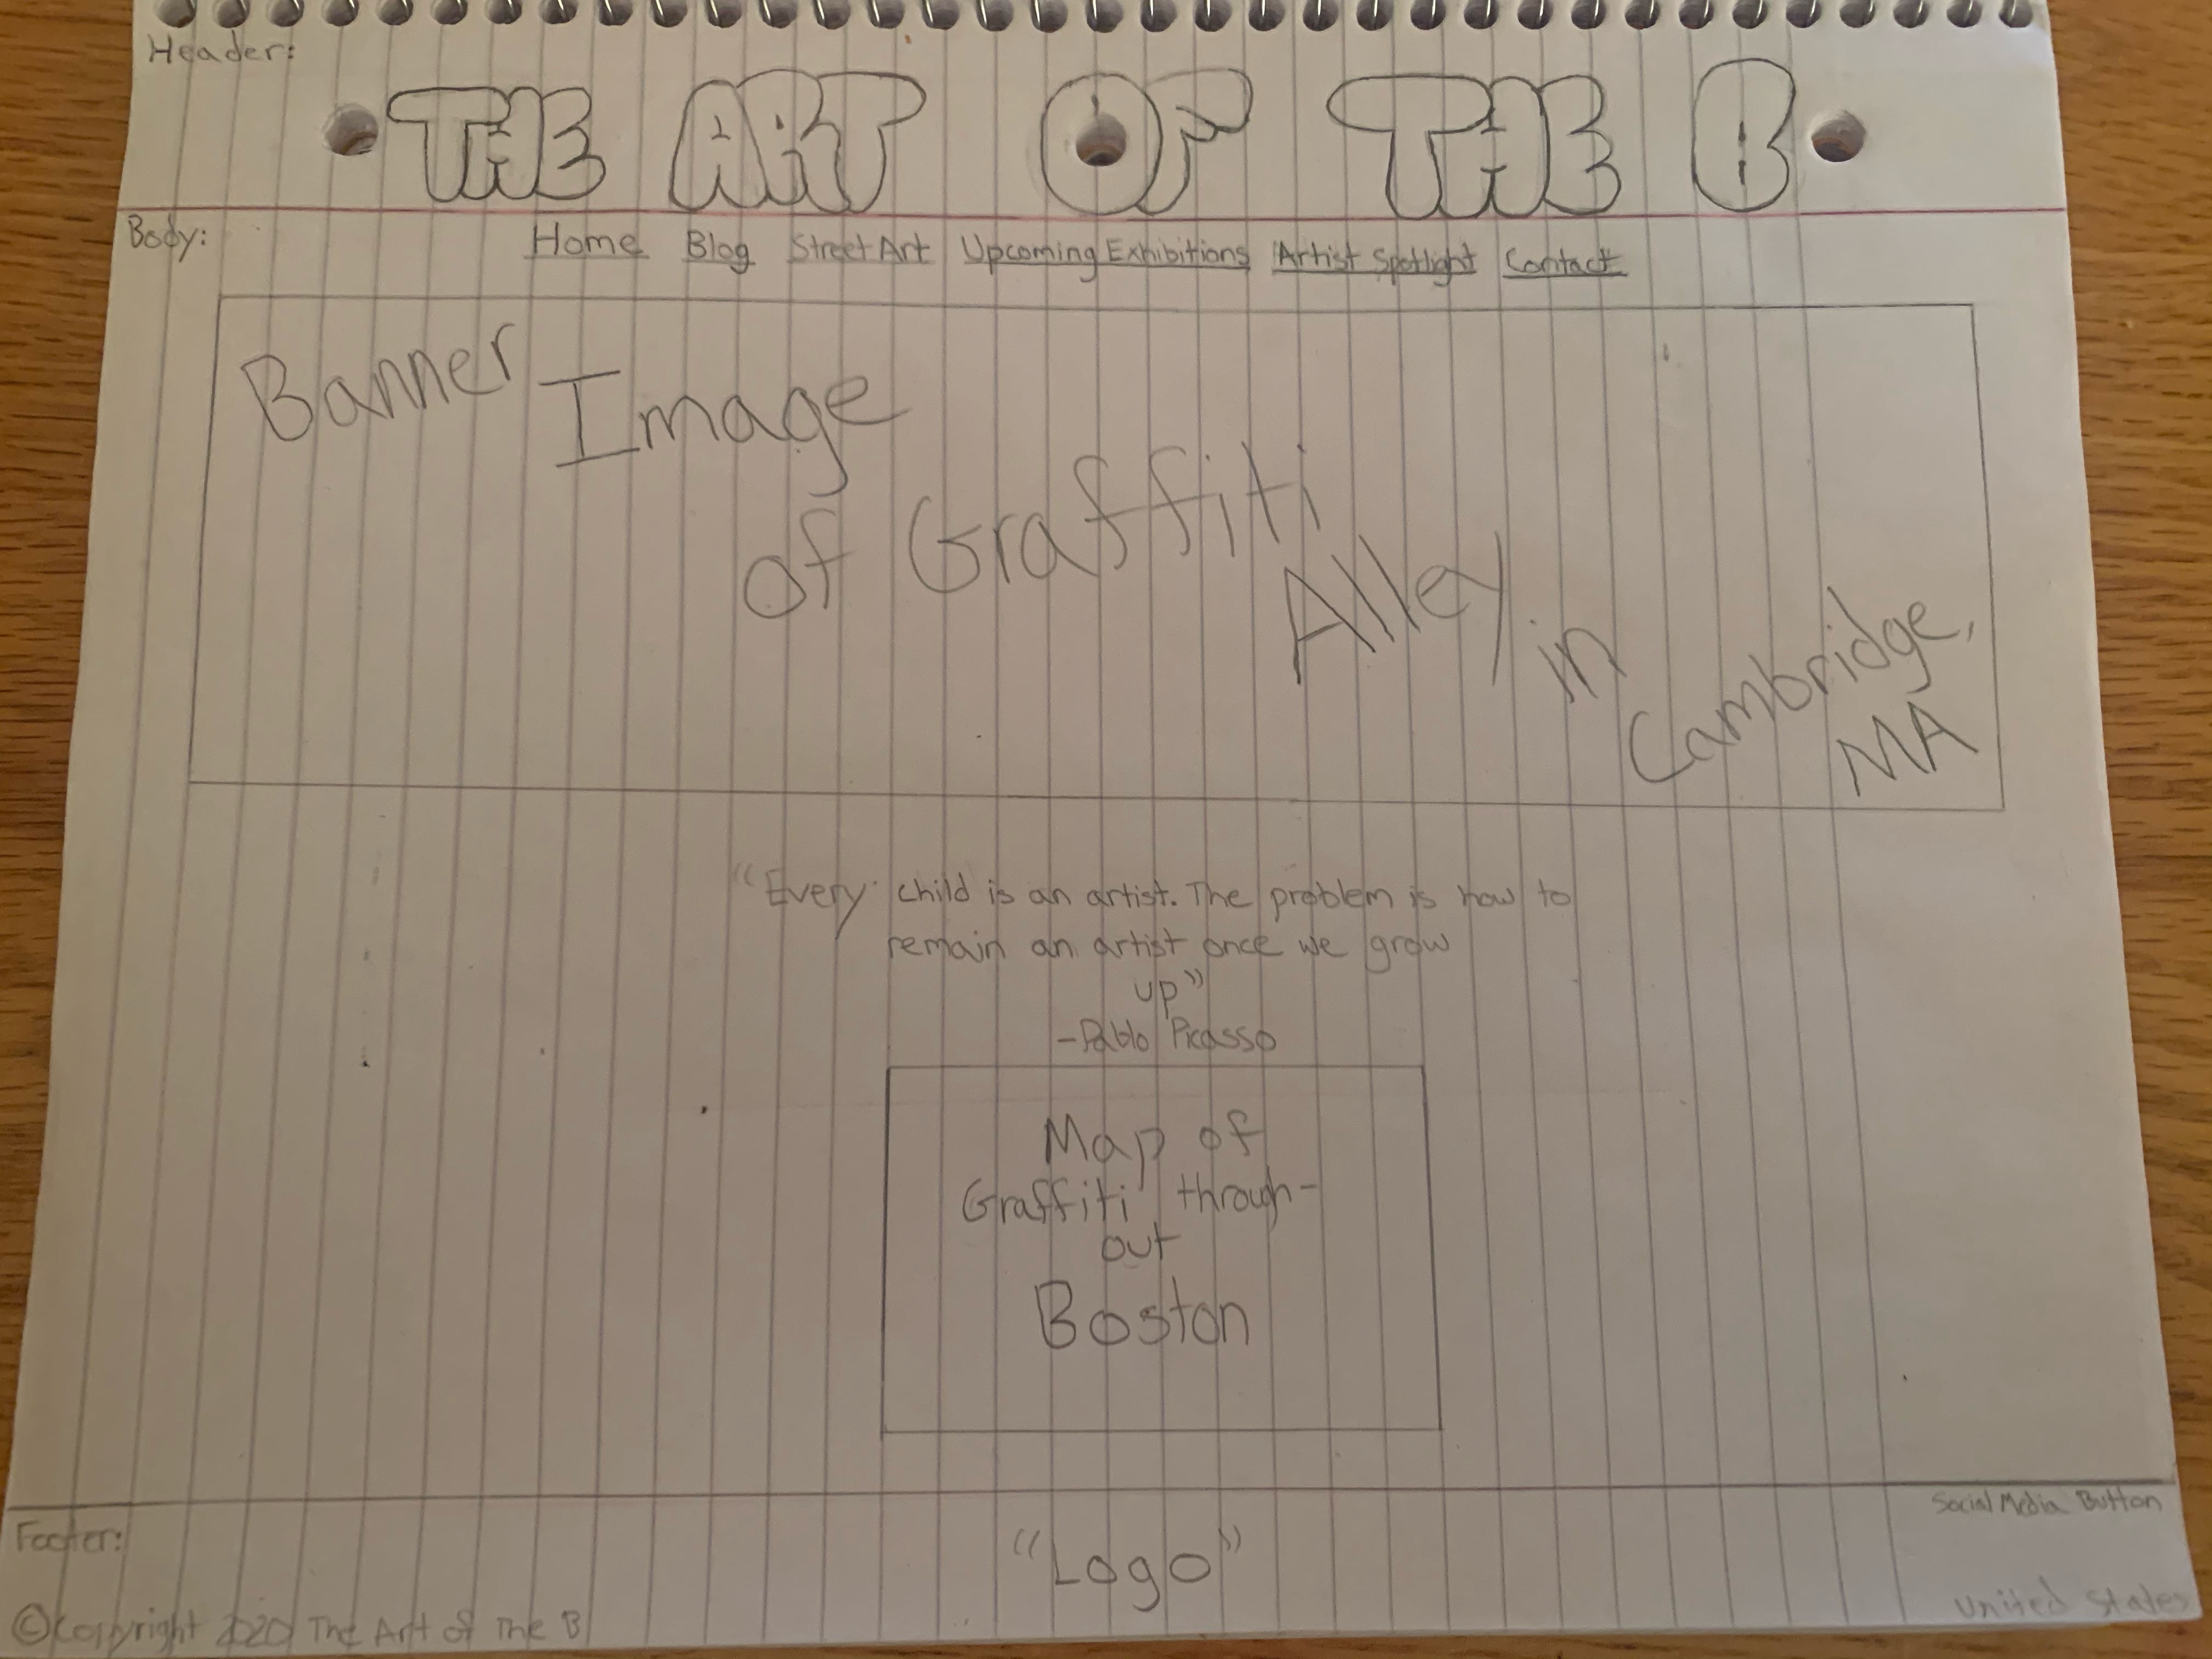 Header:
THE ART OF THE B
Body:
Home Blog Street Art Upcoming Exhibitions Artist Spotlight Contact
Banner Image
of Graffiti Alley in Cambridge,
MA
"Every child is an artist. The problem is how to
remain an artist once we grow
up"
-Pablo Picasso
Map of
Graffiti through-
out
Boston
Footer:
Social Media Button
"Logo"
©Copyright 2020 The Art of The B
United States